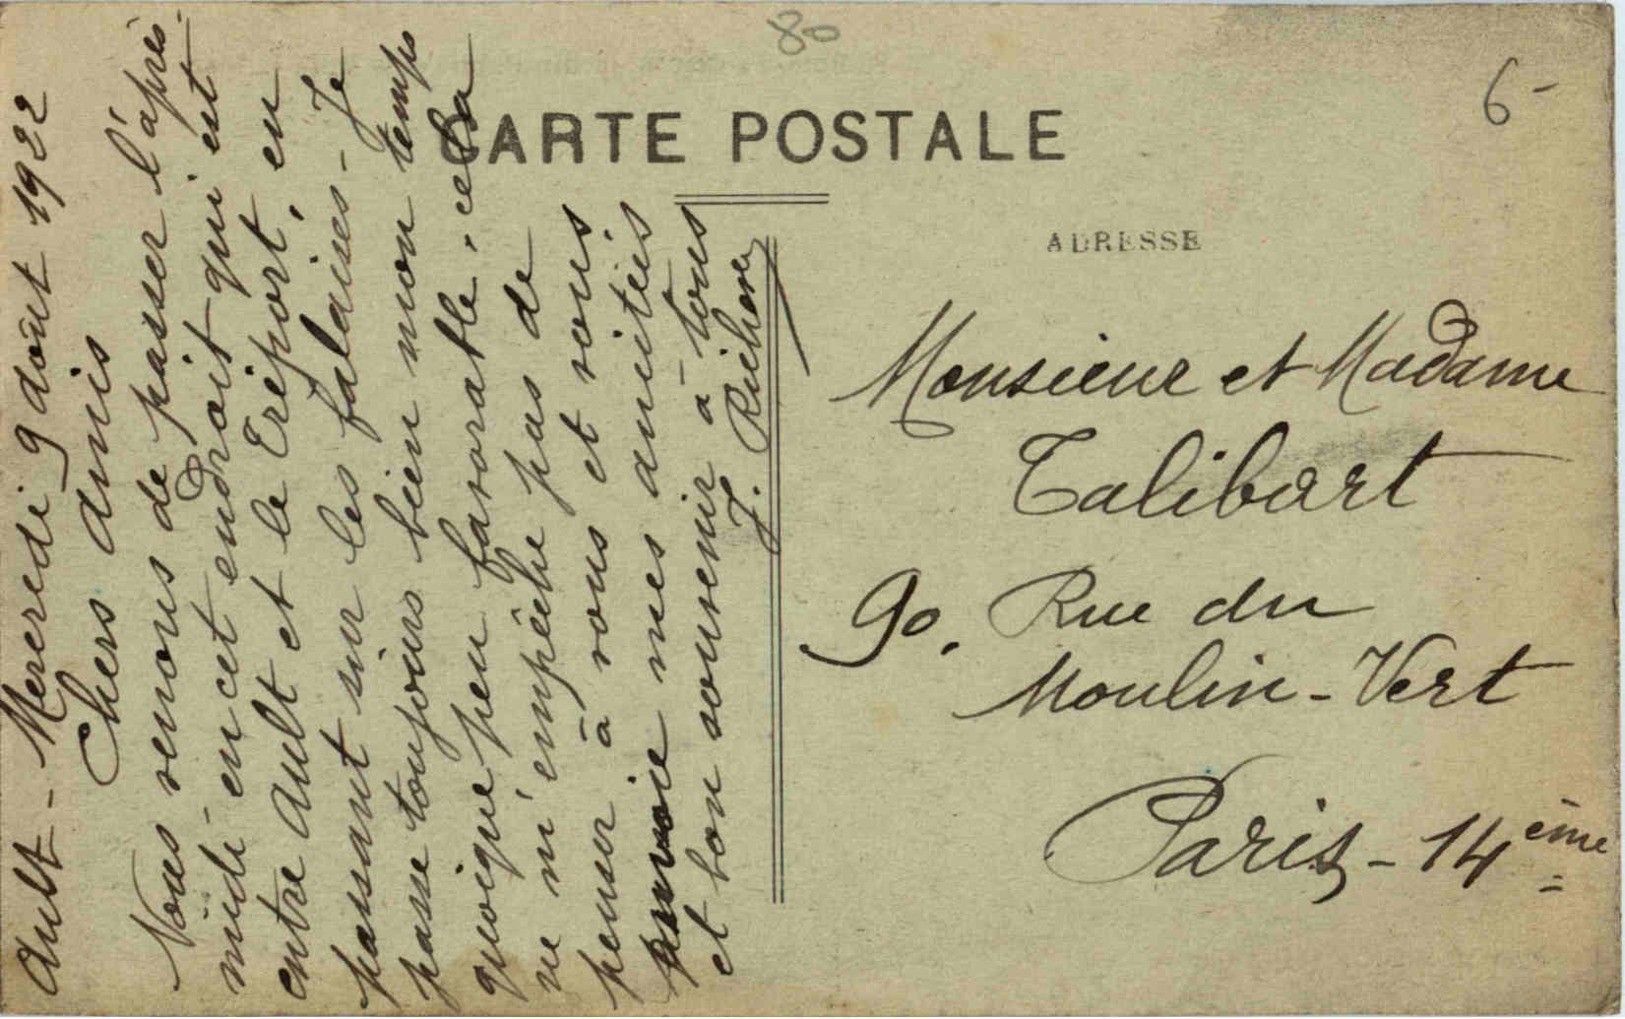 80
6-
CARTE POSTALE
ADRESSE
Ault - Mercredi 9 août 1922
Chers amis
Nous venons de passer l'après-
midi en cet endroit qui est
entre Ault et le Tréport, en
passant sur les falaises - Je
passe toujours bien mon temps
quoique peu favorable, cela
ne m'empêche pas de
penser à vous et vous
envoie mes amitiés
et bon souvenir à tous
J.
Monsieur et Madame
Talibart
90. Rue du
Moulin-Vert
Paris - 14ème